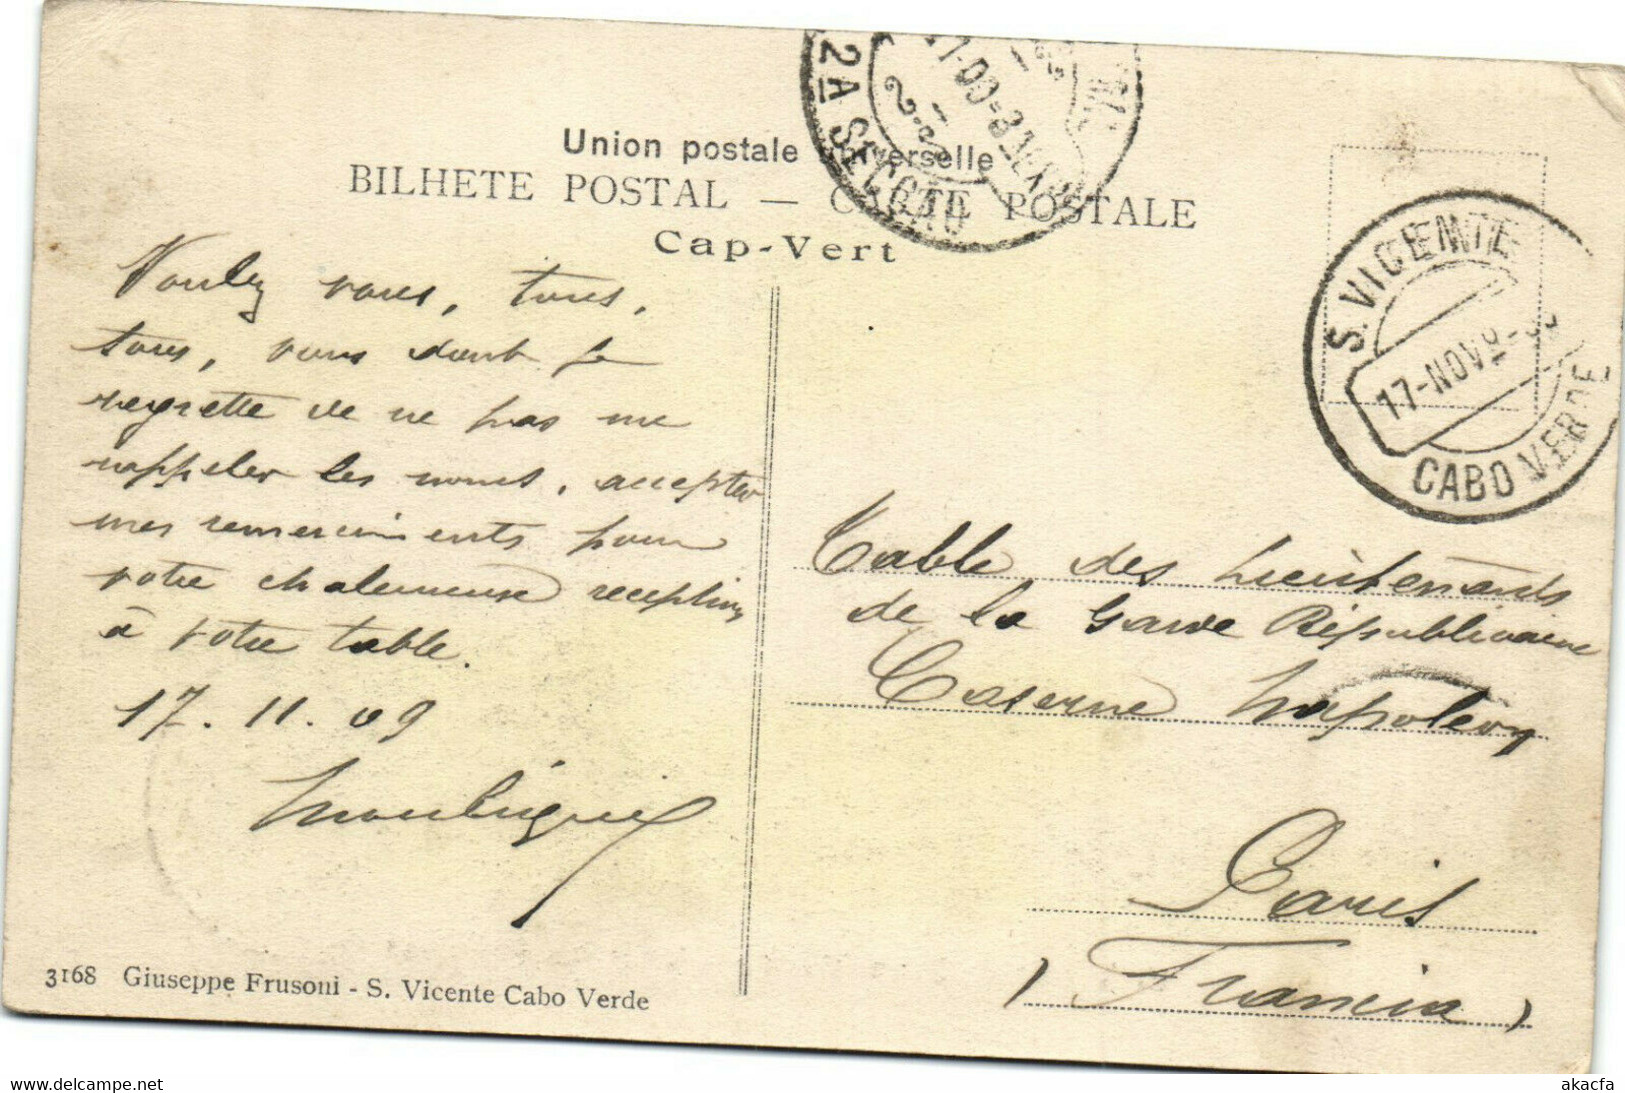 Union postale universelle
BILHETE POSTAL — CARTE POSTALE
Cap-Vert
2A SECÇÃO
S. VICENTE
17-NOV
CABO VERDE
Voulez vous, tous,
tous, vous dont je
regrette de ne pas me
rappeler les noms, accepter
mes remerciments pour
votre chaleureuse réception
à votre table.
17.11.09
Table des Lieutenants
de la Garde Républicaine
Caserne Napoléon
Paris
(Francia)
3168 Giuseppe Frusoni - S. Vicente Cabo Verde
akacfa